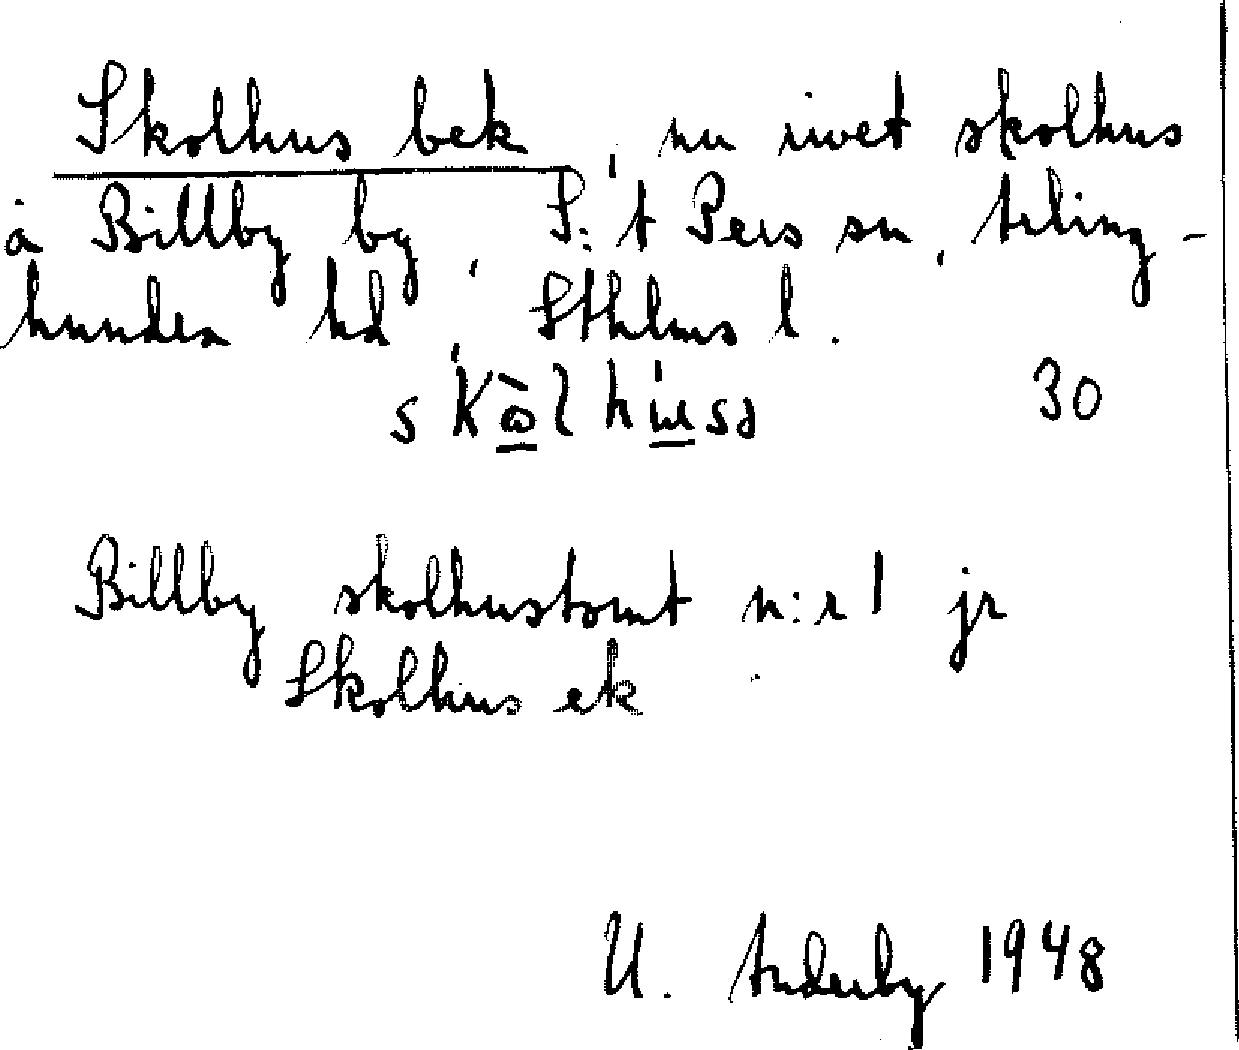 Skolhus bek, nu rivet skolhus
å Billby by, S:t Pers sn, Ärling-
hundra hd, Sthlms l.
30
Billby skolhustomt n:r 1 jr
Skolhus ek
U. Anderby 1948